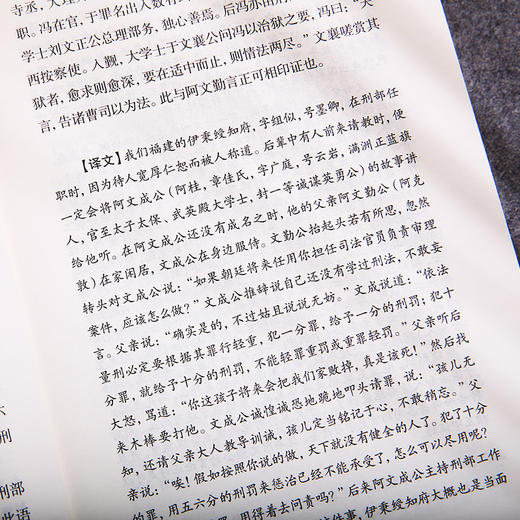 寺丞,大理
职。冯在官,于罪名出入数有
学士刘文正公总理部务,独心善焉。后冯亦出
西按察使。入觐,大学士于文襄公问冯以治狱之要,冯曰:“夫
狱者,愈求则愈深,要在适中而止,则情法两尽。”文襄嗟赏其
言,告诸曹司以为法。此与阿文勤言正可相印证也。
【译文】我们福建的伊秉绶知府,字组似,号墨卿,在刑部任
职时,因为待人宽厚仁恕而被人称道。后辈中有人前来请教时,便
一定会将阿文成公(阿桂,章佳氏,字广庭,号云岩,满洲正蓝旗
人,官至太子太保、武英殿大学士,封一等诚谋英勇公)的故事讲
给他听。在阿文成公还没有成名之时,他的父亲阿文勤公(阿克
敦)在家闲居,文成公在身边服侍。文勤公抬起头若有所思,忽然
转头对文成公说:“如果朝廷将来任用你担任司法官员负责审理
案件,应该怎么做?”文成公推辞说自己还没有学过刑法,不敢妄
言。父亲说:“确实是的,不过姑且说说无妨。”文成公说道:“依法
量刑必定要根据其罪行轻重,犯一分罪,给予一分的刑罚;犯十
分罪,就给予十分的刑罚,不能轻罪重罚或重罪轻罚。”父亲听后
大怒,骂道:“你这孩子将来会把我们家败掉,真是该死!”然后找
来木棒要打他。文成公诚惶诚恐地跪地叩头请罪,说:“孩儿无
知,还请父亲大人教导训诫,孩儿定当铭记于心,不敢稍忘。”父
亲说:“唉!假如按照你说的做,天下就没有健全的人了。犯了十分
的罪,用五六分的刑罚来惩治已经不能承受了,怎么可以尽用呢?
的罪,用得着去问责吗?”后来阿文成公主持刑部工作
件事,伊秉绶知府大概也是当面
刑
刑部
此语